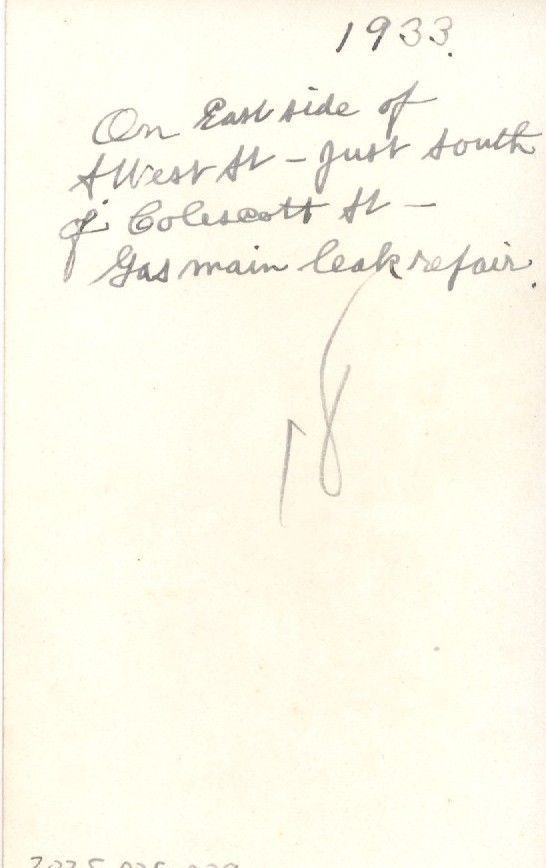 1933.
On East side of
S West St - Just South
of Colescott St -
Gas main leak repair.
18